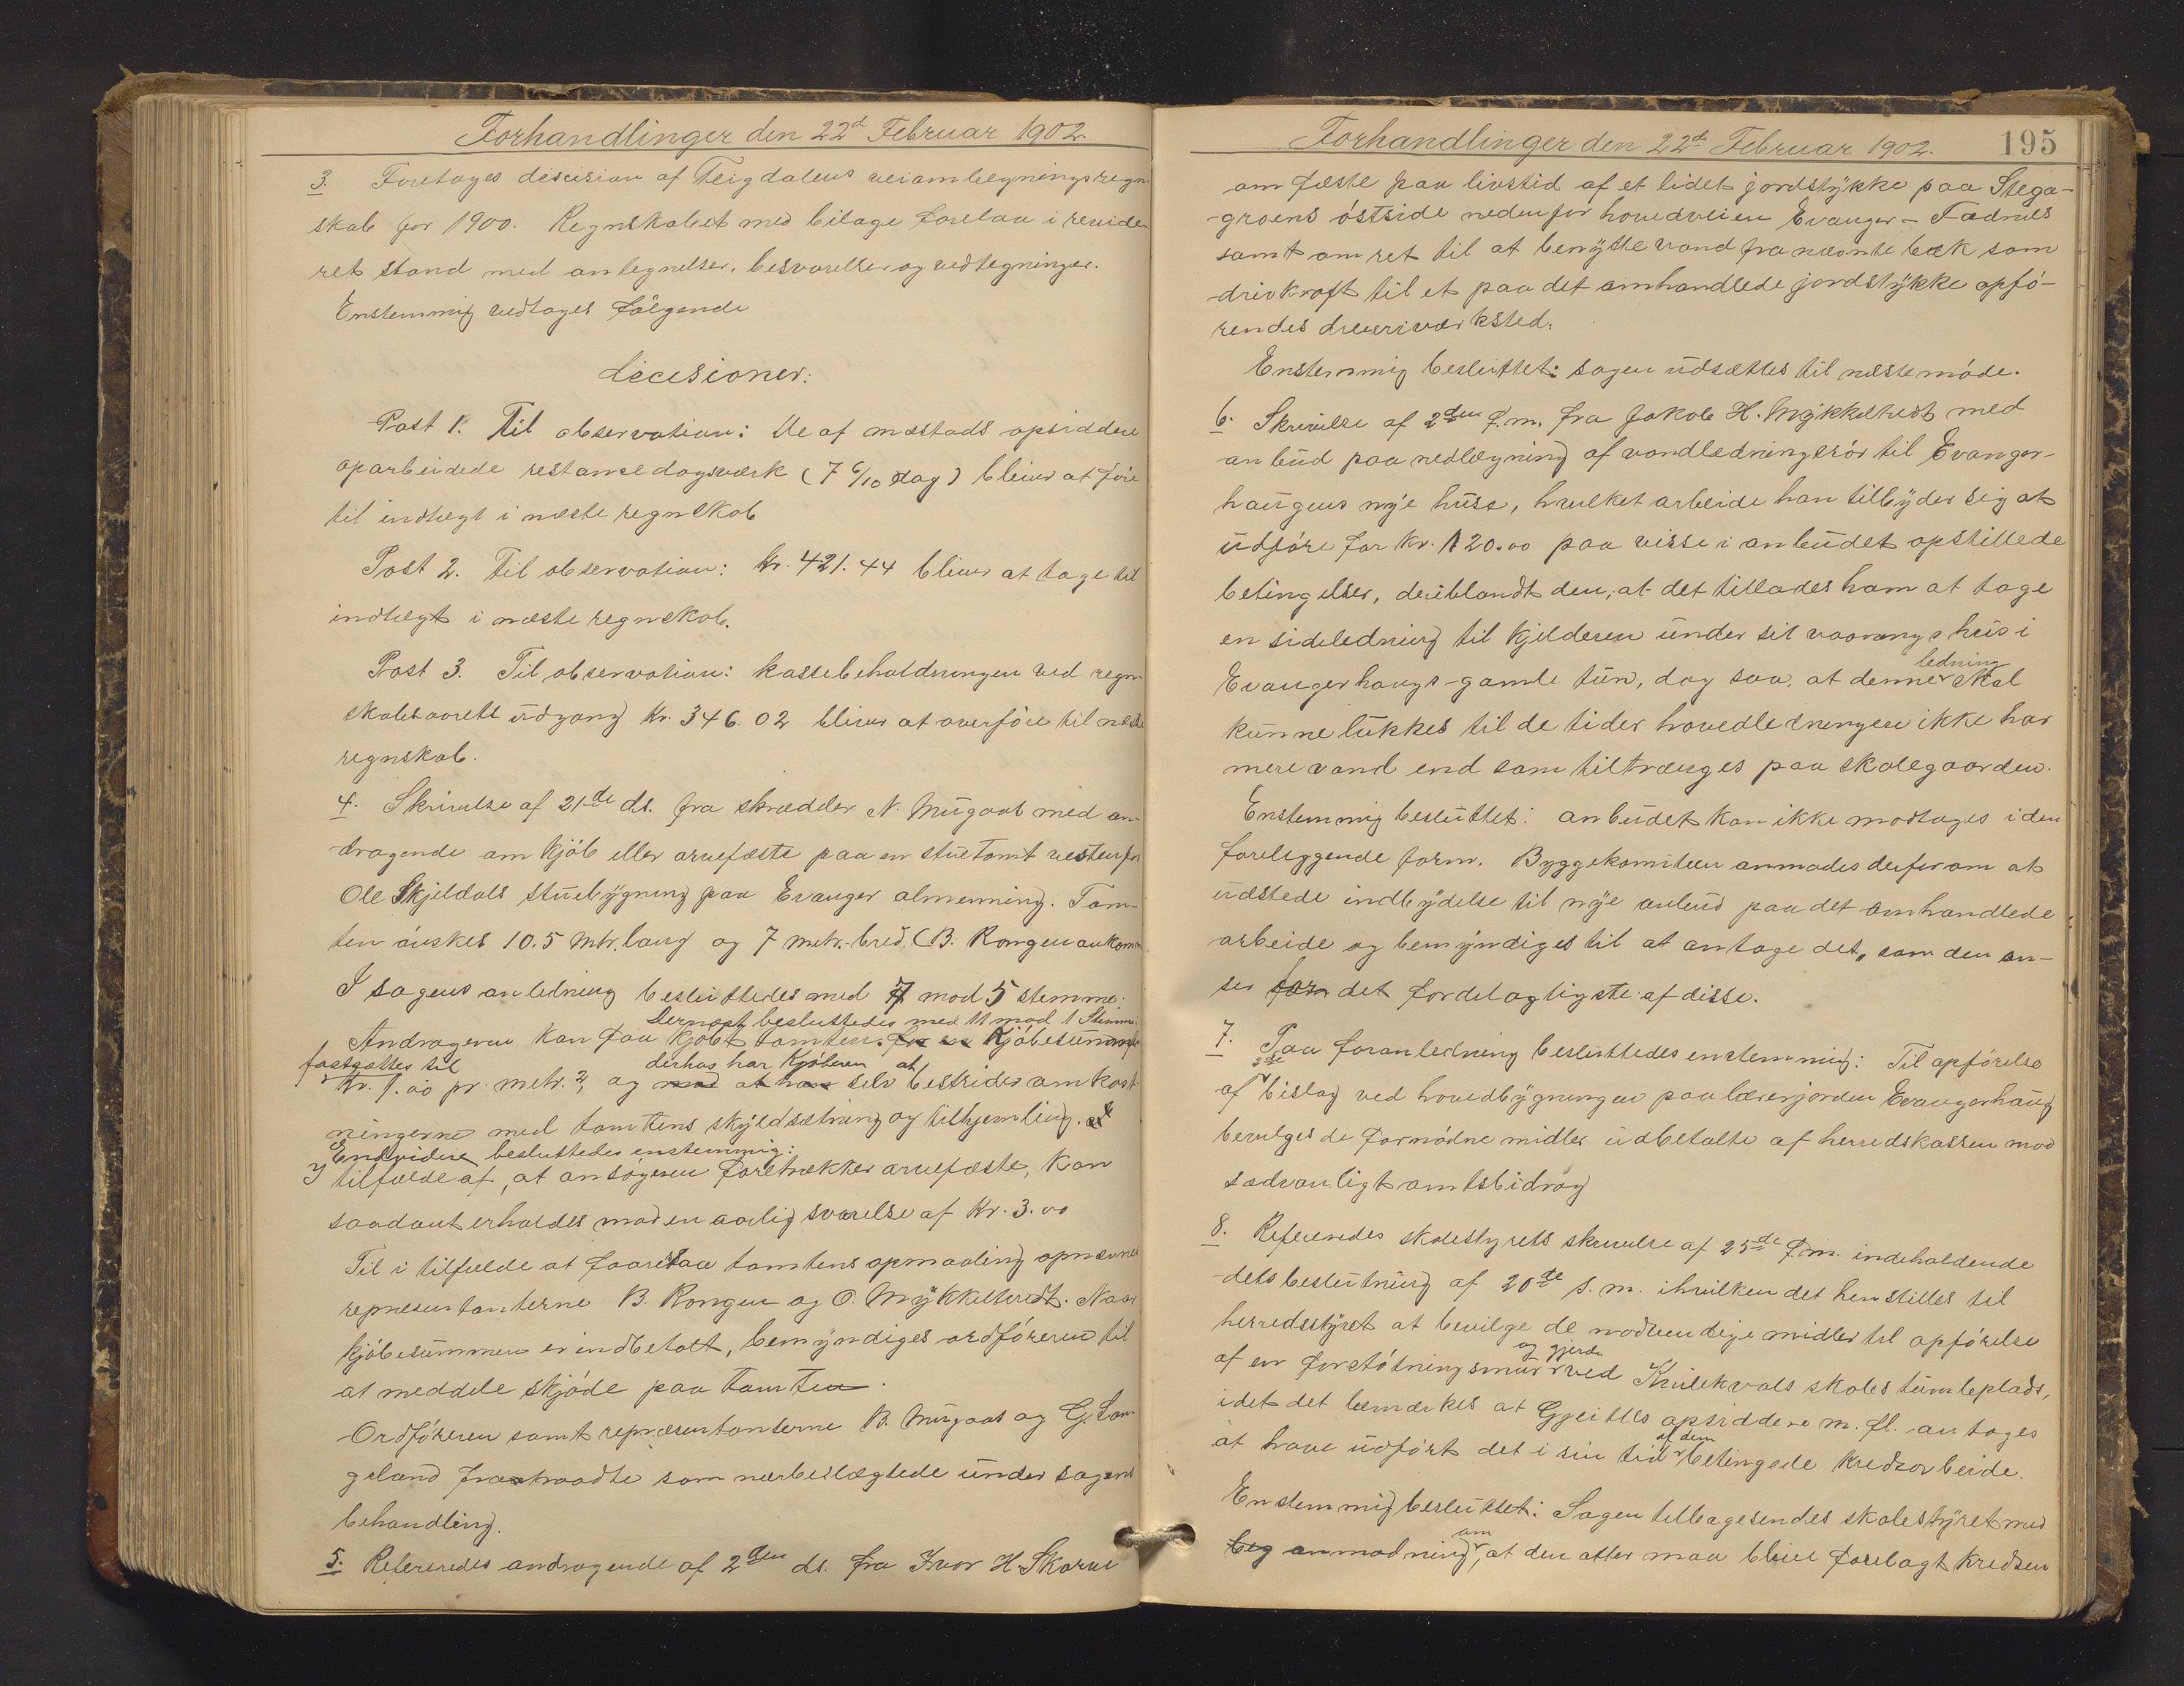 Forhandlinger den 22d Februar 1902.
3. Foretages descision af Teigdalens veiomlægningsregn-
skab for 1900. Regnskabet med bilage forelaa i revide-
ret stand med antegnelser, besvarelser og vedtegninger.
Enstemmig vedtages følgende
decisioner:
Post 1. Til observation: De af mestads opsiddere
oparbeidede restanse dagsværk (7 6/10 dag) bliver at føre
til indtægt i næste regnskab
Post 2. Til observation: Kr. 421.44 bliver at tage til
indtægt i næste regnskab.
Post 3. Til observation: kassebeholdningen ved regn-
skabsaarets udgang Kr. 346.02 bliver at overføre til næste
regnskab.
4. Skrivelse af 21de ds. fra skrædder N. Mugaas med an-
dragende om kjøb eller arvefæste paa en stuetomt vestenfor
Ole Skjeldals stuebygning paa Evanger almenning. Tom-
ten ønskes 10.5 mtr. lang og 7 metr. bred. (B. Rongen ankom
I sagens anledning besluttedes med 7 mod 5 stemme:
Dernæst besluttedes med 11 mod 1 Stemme
Andrageren kan faa kjøbt tomten. for en Kjøbesummen
fastsættes til derhos har Kjøberen at
Kr. 1.00 pr. metr.2, og med at han selv bestrider omkost-
ningerne med tomtens skyldsætning og tilhjemling.
Endvidere besluttedes enstemmig:
I tilfælde af, at ansøgeren foretrækker arvefæste, kan
saadant erholdes mod en aarlig svarelse af Kr. 3.00
Til i tilfælde at foaretaa tomtens opmaaling opnævnes
repræsentanterne B. Rongen og O. Mykkeltvedt. Naar
kjøbesummen er indbetalt, bemyndiges ordføreren til
at meddele skjøde paa tomten.
Ordføreren samt repræsentanterne B. Mugaas og G. Lan-
geland fratraadte som nærbeslægtede under sagens
behandling.
5. Refereredes andragende af 2den ds. fra Ivar H. Skorve
Forhandlinger den 22de Februar 1902. 195
om fæste paa livstid af et lidet jordstykke paa Stega-
-groens østside nedenfor hovedveien Evanger - Fadnes
samt om ret til at benytte vand fra nævnte bæk som
drivkraft til et paa det omhandlede jordstykke opfø-
rendes dreieriværksted.
Enstemmig besluttet: sagen udsættes til næste møde.
6. Skrivelse af 2den f.m. fra Jakob H. Mykkeltvedt med
anbud paa nedlægning af vandledningsrør til Evanger-
haugens nye huse, hvilket arbeide han tilbyder sig at
udføre for Kr. 120.00 paa visse i anbudet opstillede
betingelser, deriblandt den, at det tillades ham at tage
en sideledning til kjelderen under sit vaanings hus i
Evangerhaugs gamle tun, dog saa, at denne skal
ledning
kunne lukkes til de tider hovedledningen ikke har
mere vand end som tiltrænges paa skolegaarden.
Enstemmig besluttet: anbudet kan ikke modtages i den
foreliggende form. Byggekomiteen anmodes derfor om at
udstede indbydelse til nye anbud paa det omhandlede
arbeide og bemyndiges til at antage det, som den an-
ser for det fordelagtigste af disse.
7. Paa foranledning besluttedes enstemmig: Til opførelse
2de
af bislag ved hovedbygningen paa lærerjorden Evangerhaug
bevilges de fornødne midler udbetalte af herredskassen mod
sædvanligt amtsbidrag
8. Refereredes skolestyrets skrivelse af 25de f.m. indeholdende
dets beslutning af 20de s.m. i hvilken det henstilles til
herredsstyret at bevilge de nødvendige midler til opførelse
og gjerde
af en forstøtningsmur ved Kvilekvals skoles tumleplads,
idet det bemærkes at Gjeitles opsiddere m. fl. antages
af dem
at have udført det i sin tid betingede kredsarbeide.
Enstemmig besluttet: Sagen tilbagesendes skolestyret med
om
beg anmodning, at den atter maa blive forelagt kredsen